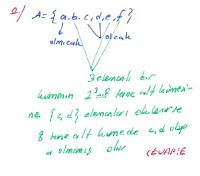 2/ A = { a, b, c, d, e, f }
olmıcak olcak
3 elemanlı bir
kümenin 2³=8 tane alt kümesi-
ne {c, d} elemanları eklenirse
8 tane alt kümede c, d olup
a olmamış olur
CEVAP: E